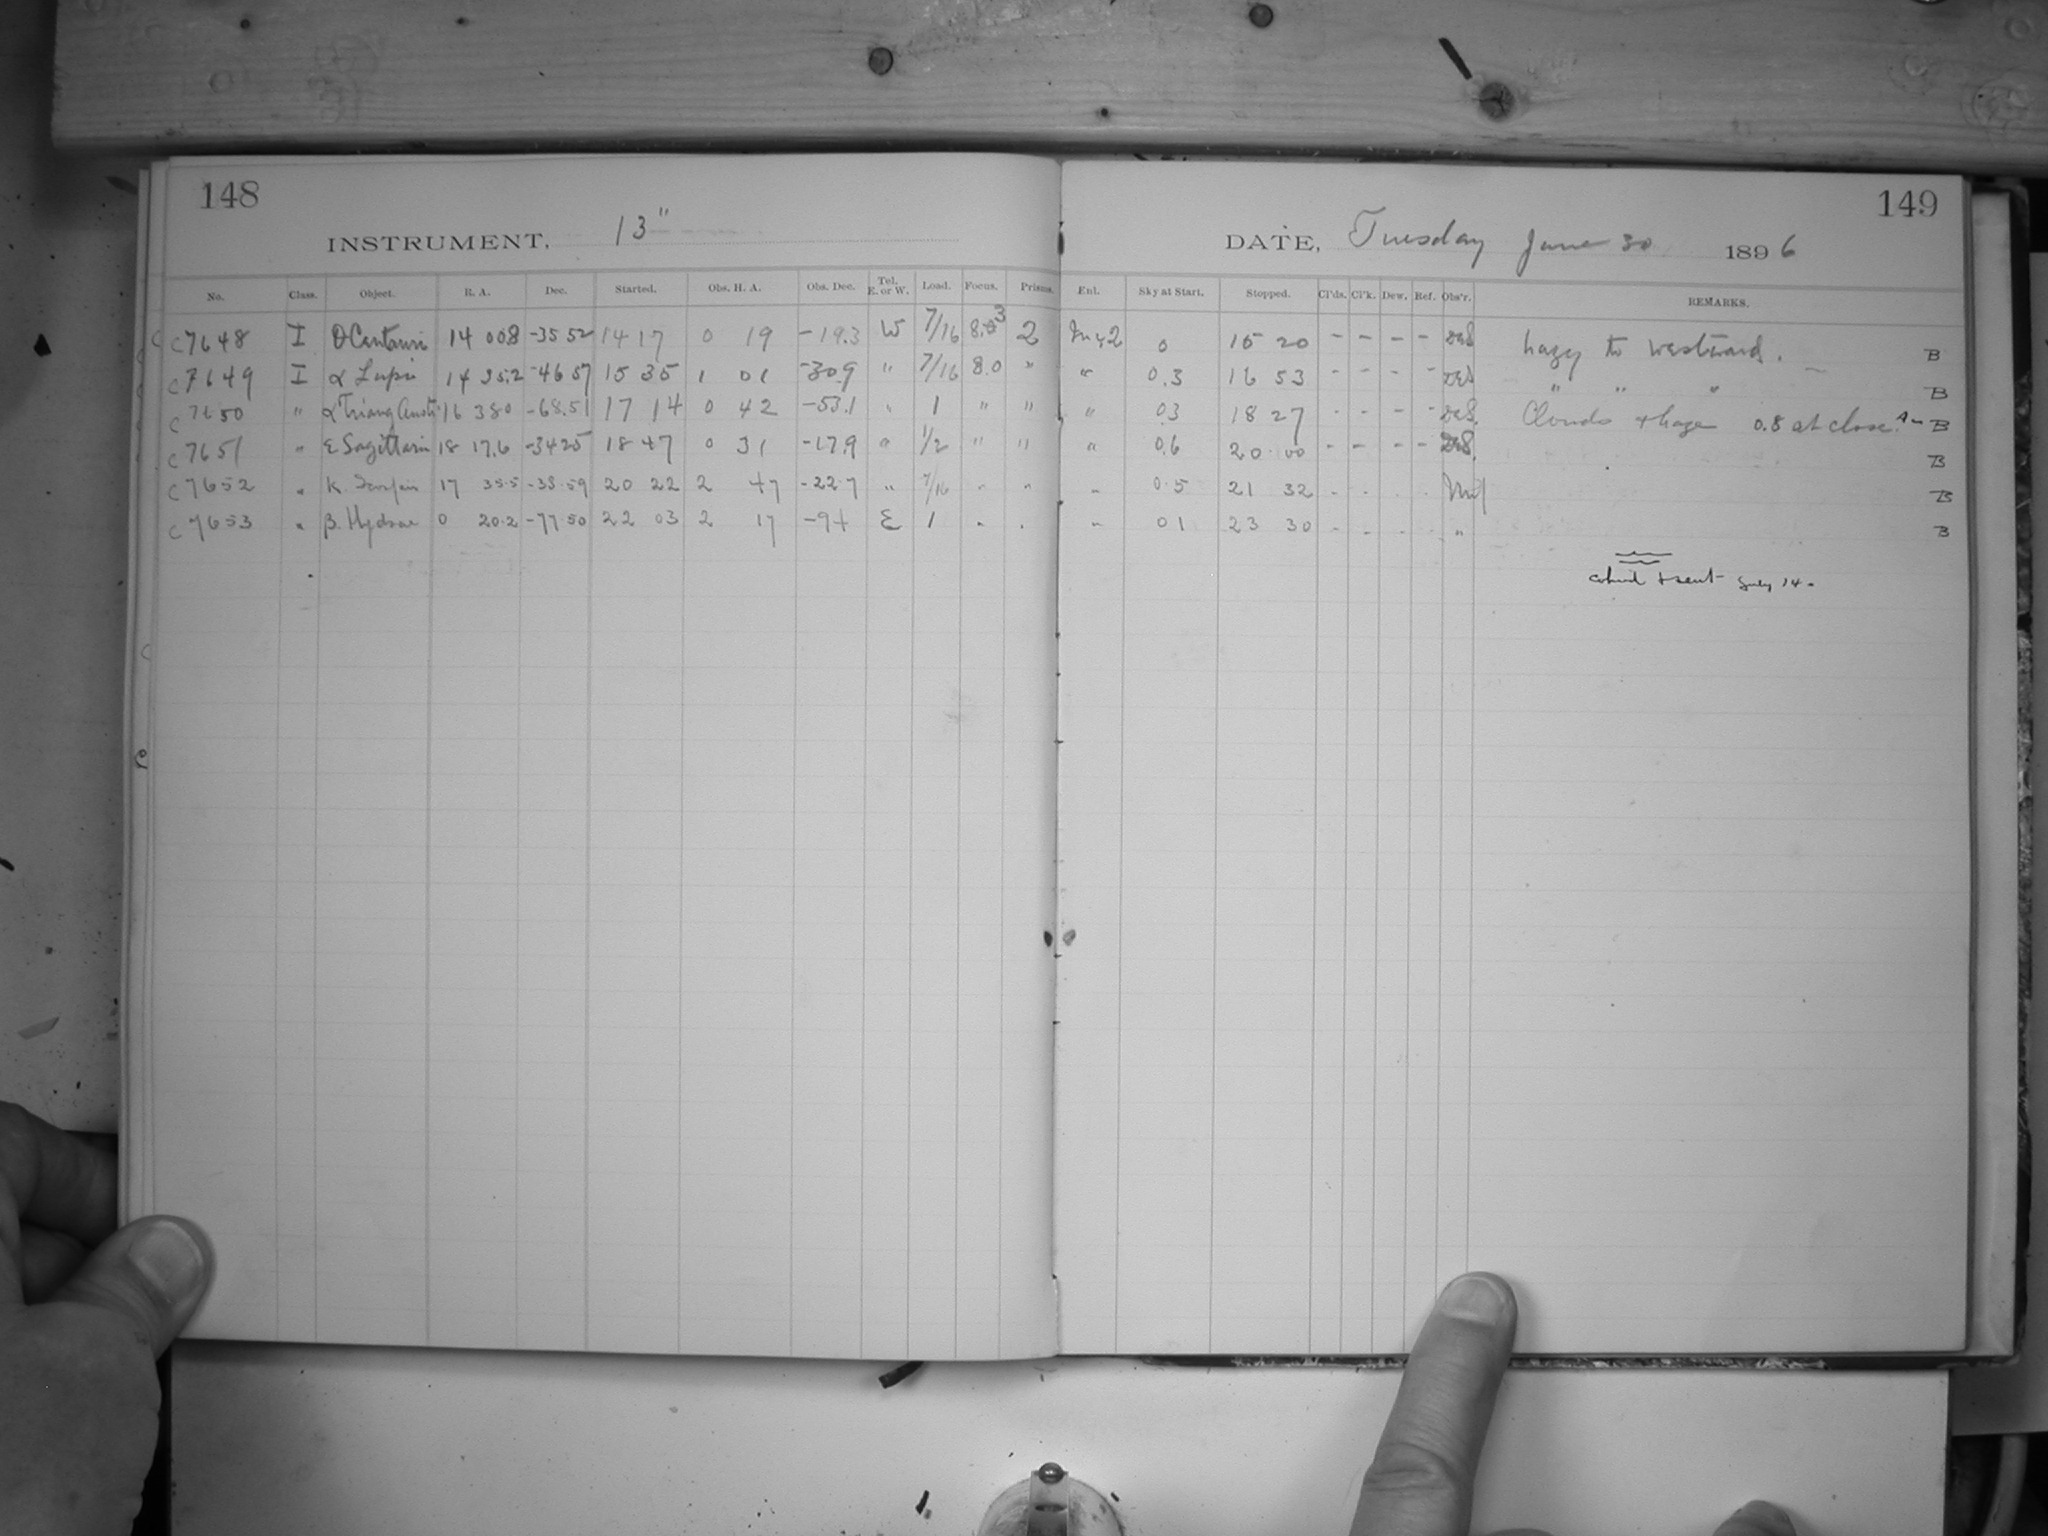 148
INSTRUMENT, 13"
No. Class. Object. R. A. Dec. Started. Obs. H. A. Obs. Dec. Tel. E. or W. Load. Focus. Prisms.
C7648 I θ Centauri 14 00.8 -35 52 14 17 0 19 -19.3 W 7/16 8.3 2
C7649 I α Lupi 14 35.2 -46 57 15 35 1 01 -30.9 " 7/16 8.0 "
C7650 " α Triang Aust 16 38.0 -68.51 17 14 0 42 -53.1 " 1 " "
C7651 " ε Sagittarii 18 17.6 -34 25 18 47 0 31 -17.9 " 1/2 " "
C7652 " K. Scorpii 17 35.5 -38.59 20 22 2 47 -22.7 " 7/16 " "
C7653 " β. Hydrae 0 20.2 -77 50 22 03 2 17 E 1 " "
149
DATE, Tuesday June 30 1896
Enl. Sky at Start. Stopped. Cl'ds. Cl'k. Dew. Ref. Obs'r. REMARKS.
0 15 20 - - - - hazy to westward. B
" 0.3 16 53 - - - - " " " B
" 0.3 18 27 - - - - Clouds & haze 0.8 at close. B
" 0.6 20 00 - - - - B
" 0.5 21 32 - - - - B
" 0.1 23 30 - - - - " B
& sent July 14.